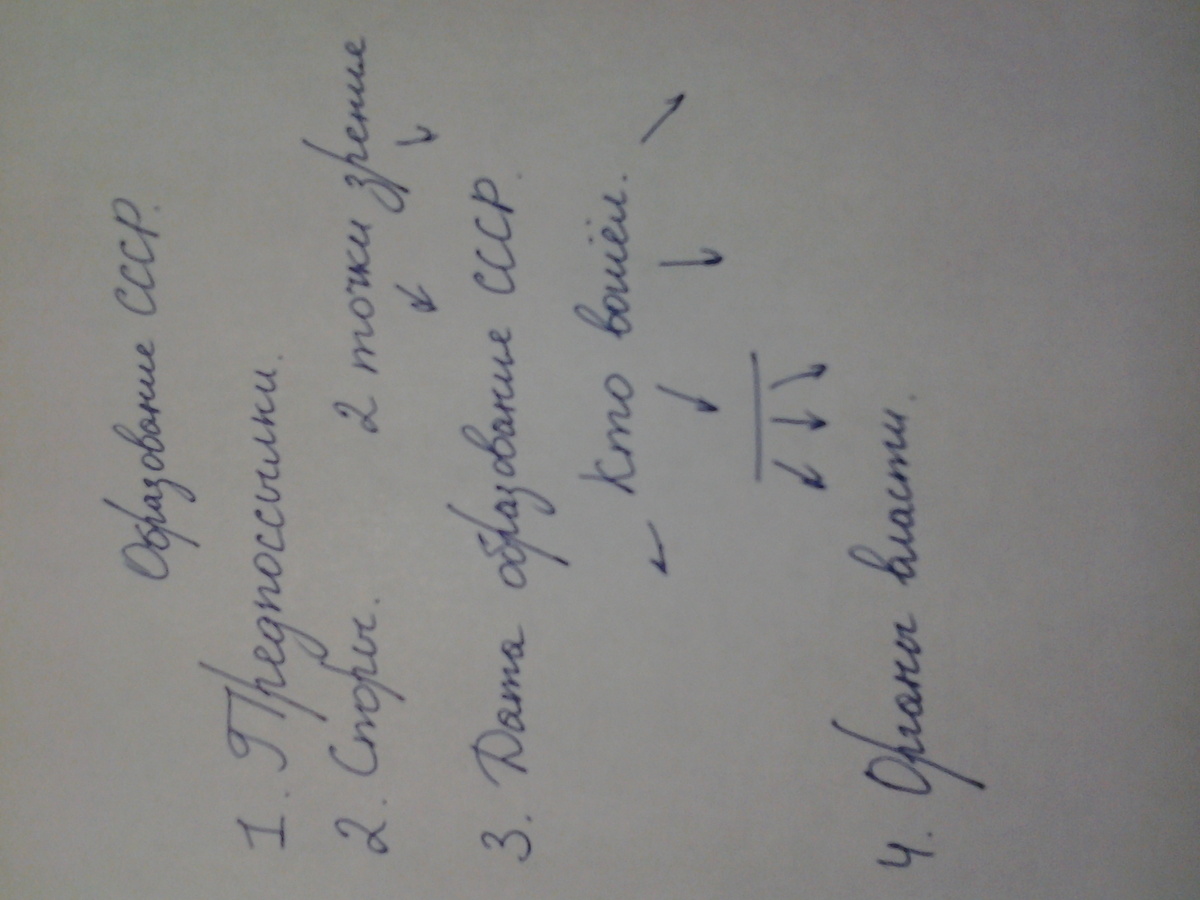 Образование СССР.
1. Предпоссылки.
2. Споры. 2 точки зрение
3. Дата образование СССР.
Кто вошёл.
4. Органы власти.